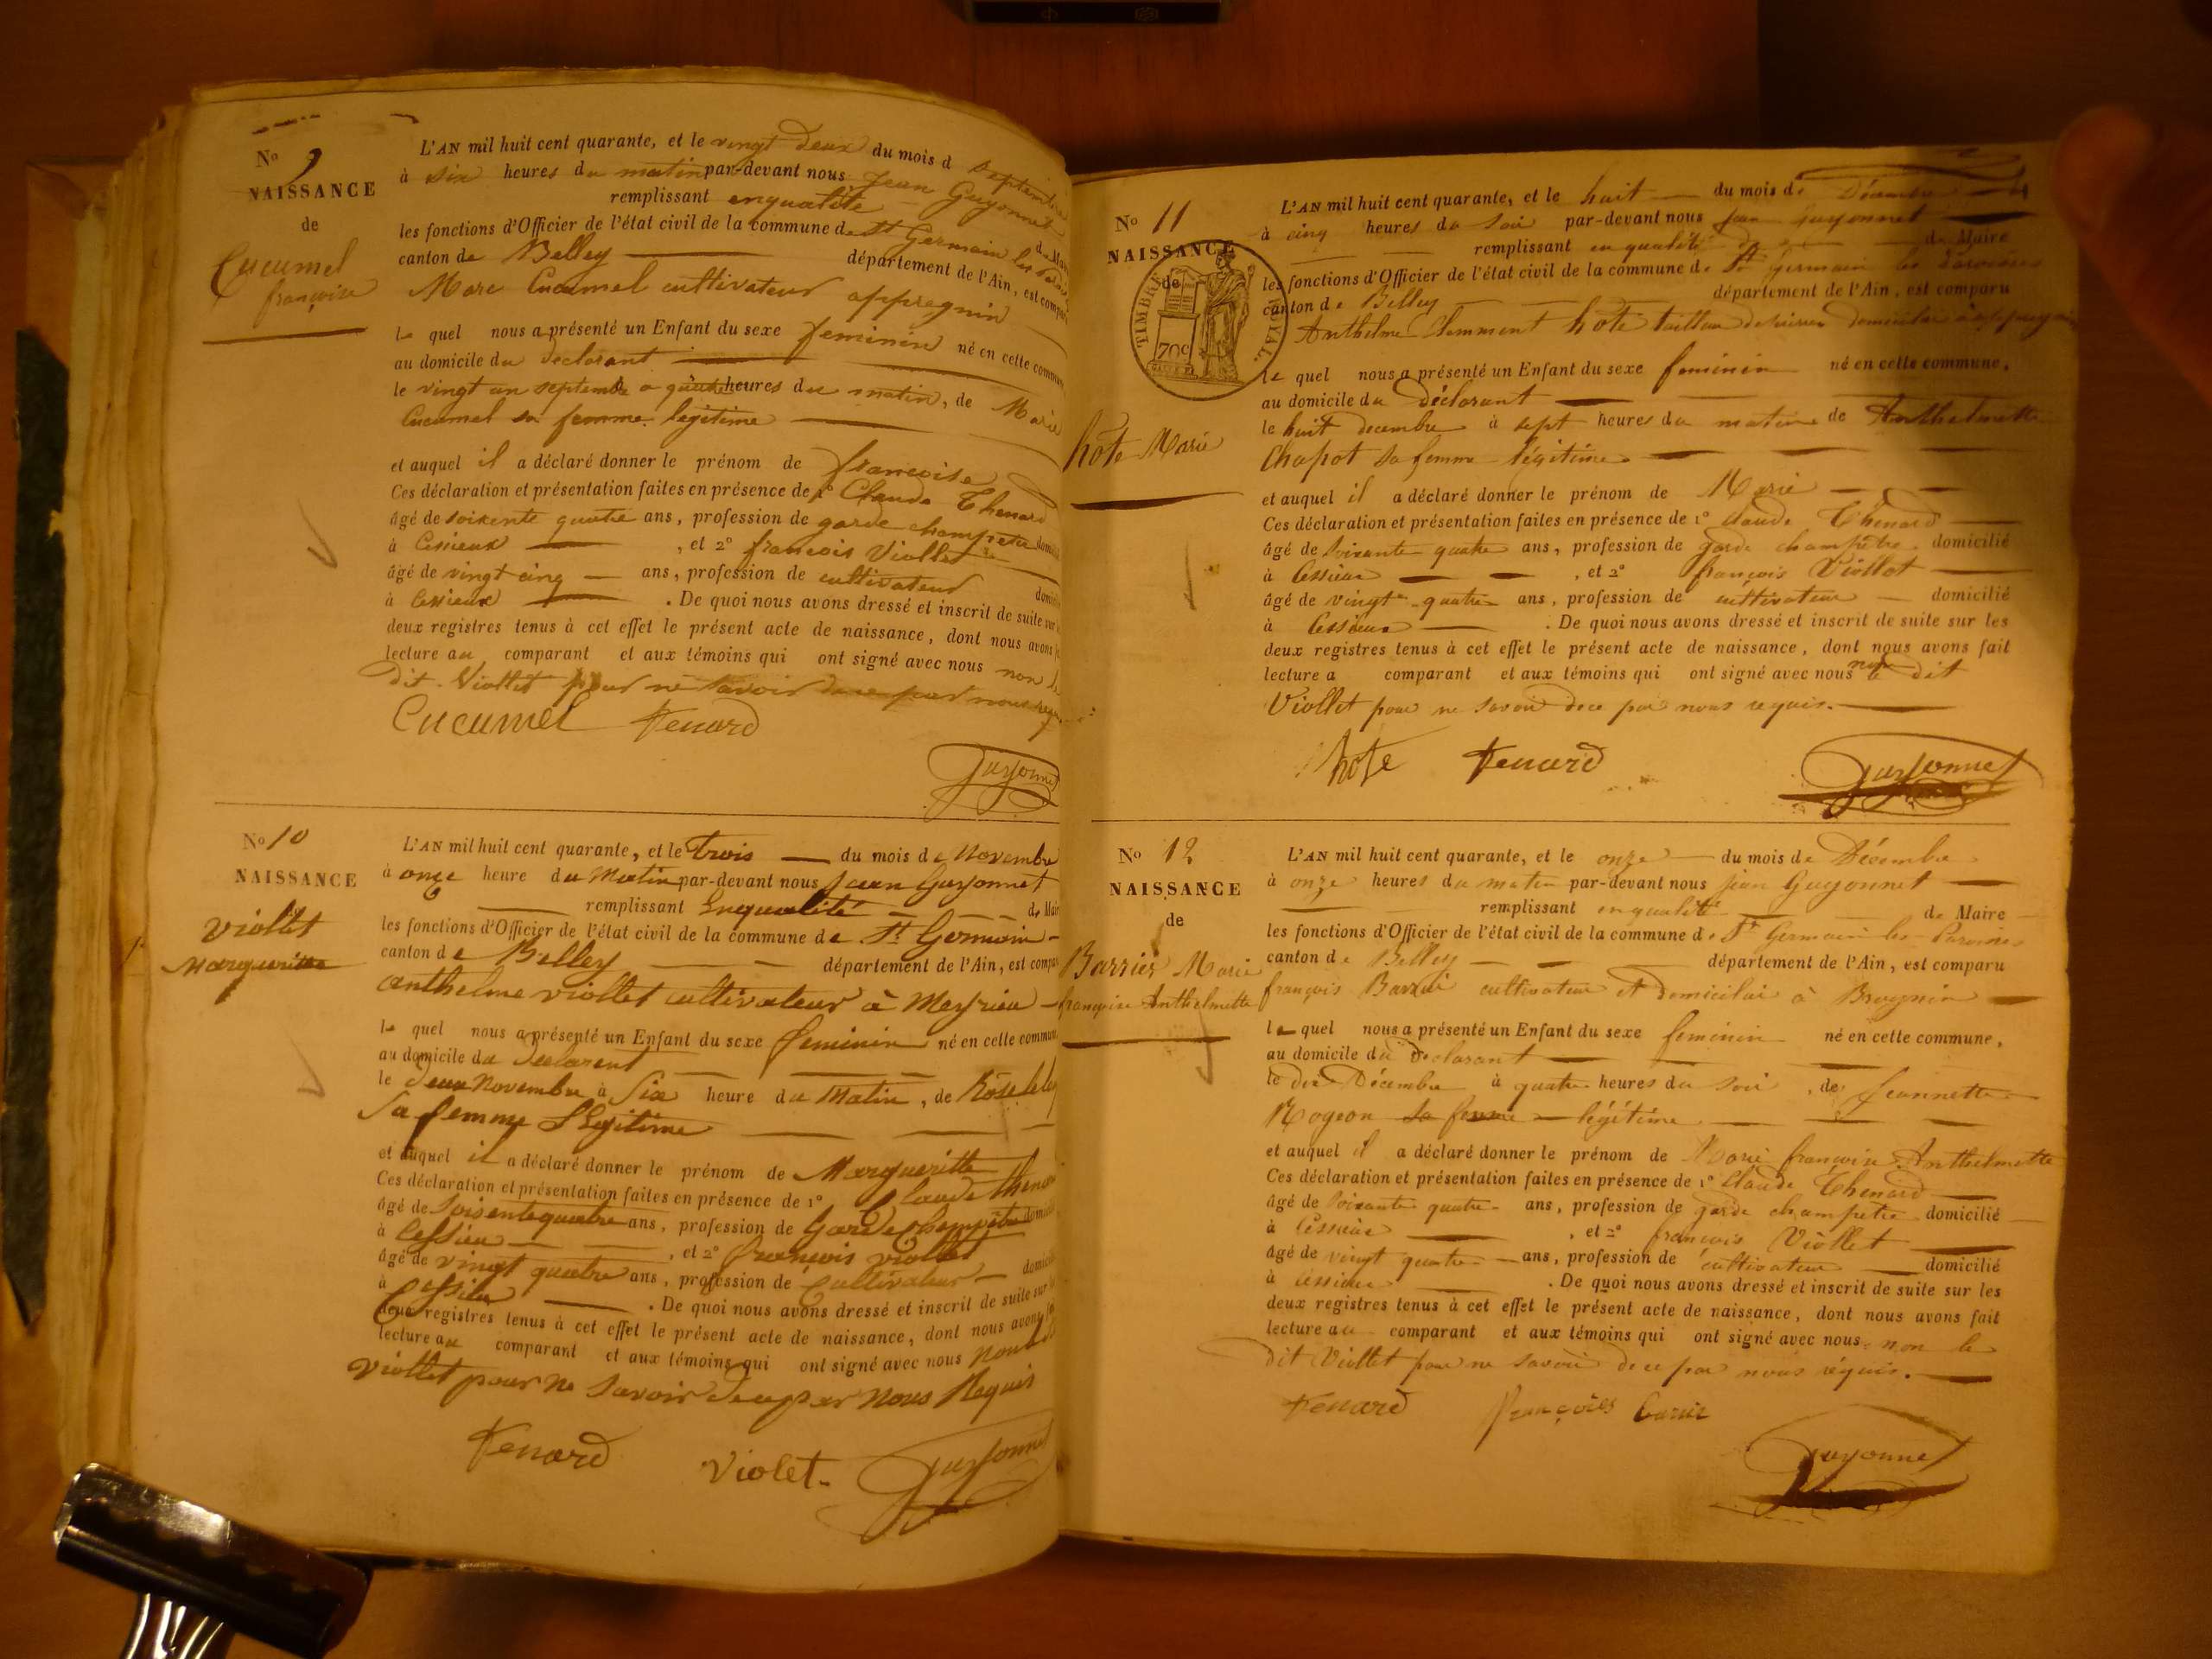 No 9
NAISSANCE
de
Cucumel
françoise
L'AN mil huit cent quarante, et le vingt deux du mois d Septembre
à six heures du matin par-devant nous Jean Guyonnet
remplissant enqualité de Mai
les fonctions d'Officier de l'état civil de la commune de St Germain les
canton de Belley département de l'Ain, est compa
Marc Cucumel cultivateur appregnin
le quel nous a présenté un Enfant du sexe feminin né en cette commun
au domicile du déclarant
le vingt un septembre a quatre heures du matin, de Marie
Cucumel sa femme legitime
et auquel il a déclaré donner le prénom de françoise
Ces déclaration et présentation faites en présence de 1o Claude Thenard
âgé de soixente quatre ans, profession de garde champetre domici
à Cessieux , et 2o francois Viollet
âgé de vingt cinq ans, profession de cultivateur domici
à Cessieux . De quoi nous avons dressé et inscrit de suite sur
deux registres tenus à cet effet le présent acte de naissance, dont nous avons
lecture au comparant et aux témoins qui ont signé avec nous non le
dit Viollet pour ne savoir de ce par nous requ
Cucumel Tenard
Guyonnet
No 10
NAISSANCE
Viollet
Margueritte
L'AN mil huit cent quarante, et le trois du mois de Novembre
à onze heure du Matin par-devant nous Jean Guyonnet
remplissant Enqualité de Mai
les fonctions d'Officier de l'état civil de la commune de St Germain
canton de Belley département de l'Ain, est compa
anthelme viollet cultivateur à Meyrieu
le quel nous a présenté un Enfant du sexe feminin né en cette commun
au domicile du declarent
le deux Novembre à Six heure du Matin, de Rose
Sa femme Legitime
et auquel il a déclaré donner le prénom de Margueritte
Ces déclaration et présentation faites en présence de 1o Claude thenar
âgé de Soisente quatre ans, profession de Garde Champêtre domici
à Cessieu , et 2o françois viollet
âgé de vingt quatre ans, profession de Cultivateur domici
à Cessieu . De quoi nous avons dressé et inscrit de suite sur
deux registres tenus à cet effet le présent acte de naissance, dont nous avons
lecture au comparant et aux témoins qui ont signé avec nous non
viollet pour ne Savoir de ce par nous Requis
Tenard Violet Guyonnet
No 11
NAISSANCE
de
TIMBRE ROYAL.
70c
hôte Marie
L'AN mil huit cent quarante, et le huit du mois de Décembre
à cinq heures du soir par-devant nous Jean Guyonnet
remplissant en qualité de Maire
les fonctions d'Officier de l'état civil de la commune de St Germain les Paroisses
canton de Belley département de l'Ain, est comparu
Anthelme Clemment hôte tailleur de pierres domicilié à
le quel nous a présenté un Enfant du sexe feminin né en cette commune,
au domicile du déclarant
le huit decembre à sept heures du matin de Anthelmette
Chapot sa femme légitime
et auquel il a déclaré donner le prénom de Marie
Ces déclaration et présentation faites en présence de 1o Claude Thenard
âgé de soixante quatre ans, profession de garde champêtre domicilié
à Cessieux , et 2o françois Viollet
âgé de vingt quatre ans, profession de cultivateur domicilié
à Cessieux . De quoi nous avons dressé et inscrit de suite sur les
deux registres tenus à cet effet le présent acte de naissance, dont nous avons fait
lecture a comparant et aux témoins qui ont signé avec nous non le dit
Viollet pour ne savoir de ce par nous requis.
hote Tenard Guyonnet
No 12
NAISSANCE
de
Barrier Marie
françoise Anthelmette
L'AN mil huit cent quarante, et le onze du mois de Décembre
à onze heures du matin par-devant nous jean Guyonnet
remplissant en qualité de Maire
les fonctions d'Officier de l'état civil de la commune de St Germain les Paroisses
canton de Belley département de l'Ain, est comparu
françois Barrier cultivateur et domicilié à Brognin
le quel nous a présenté un Enfant du sexe feminin né en cette commune,
au domicile du declarant
le dix Décembre à quatre heures du soir, de Jeannette
Rogeon sa femme légitime
et auquel il a déclaré donner le prénom de Marie françoise Anthelmette
Ces déclaration et présentation faites en présence de 1o Claude Thenard
âgé de soixante quatre ans, profession de garde champetre domicilié
à Cessieux , et 2o françois Viollet
âgé de vingt quatre ans, profession de cultivateur domicilié
à Cessieux . De quoi nous avons dressé et inscrit de suite sur les
deux registres tenus à cet effet le présent acte de naissance, dont nous avons fait
lecture au comparant et aux témoins qui ont signé avec nous non le
dit Viollet pour ne savoir de ce par nous réquis.
Tenard François
Guyonnet